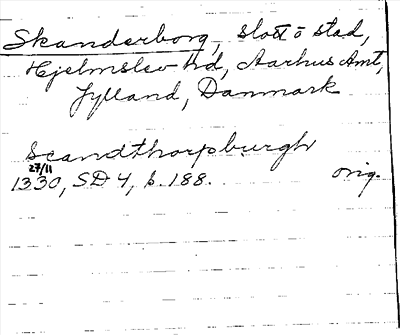 Skanderborg, slott o stad,
Hjelmslev hd, Aarhus Amt,
Jylland, Danmark
Scandthorpburgh
27/11
1330, SD 4, s. 188. orig.